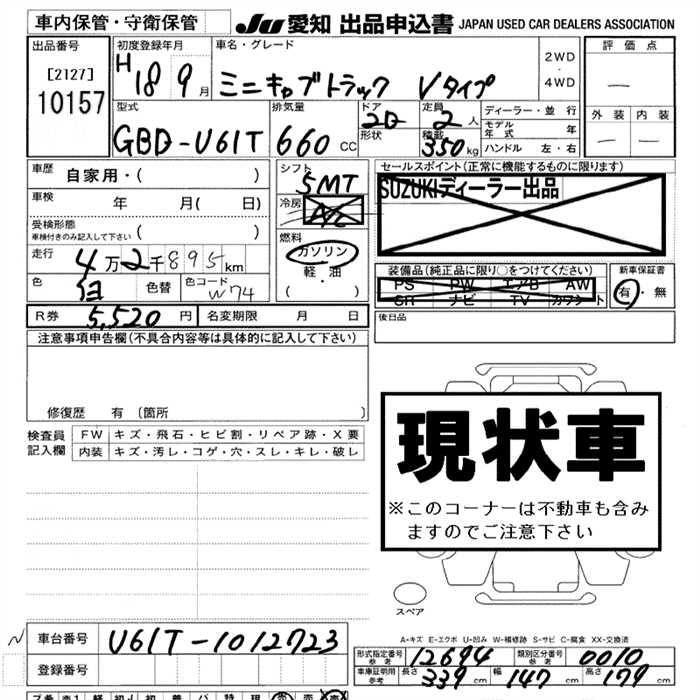 車内保管・守衛保管
JU 愛知 出品申込書 JAPAN USED CAR DEALERS ASSOCIATION
出品番号
[2127]
10157
初度登録年月
H 18 9月
車名・グレード
ミニキャブトラック Vタイプ
2WD
・
4WD
評価点
—
外装 内装
— —
型式
GBD-U61T
排気量
660 CC
ドア
2D
形状
定員
2人
積載
350kg
ディーラー・並行
モデル年式 年
ハンドル 左・右
車歴 自家用・( )
車検 年 月( 日)
受検形態
車検付きのみ記入して下さい ( )
走行 4万2千895km
色 白 色替 色コード W74
シフト
5MT
冷房
A/C
燃料
ガソリン
・
軽・油
( )
セールスポイント(正常に機能するものに限ります)
SUZUKIディーラー出品
装備品(純正品に限り○をつけてください)
PS PW エアB AW
SR ナビ TV カワシート
新車保証書
有・無
R券 5,520 円 名変期限 月 日
後日品
注意事項申告欄(不具合内容等は具体的に記入して下さい)
修復歴 有 〔箇所 〕
検査員
記入欄
FW キズ・飛石・ヒビ割・リペア跡・X要
内装 キズ・汚レ・コゲ・穴・スレ・キレ・破レ
現状車
※このコーナーは不動車も含み
ますのでご注意下さい
スペア
A-キズ E-エクボ U-凹み W-補修跡 S-サビ C-腐食 XX-交換済
車台番号 U61T-1012723
登録番号
形式指定番号 参考 12694 類別区分番号 参考 0010
車庫証明用 参考 長さ 339 cm 幅 147 cm 高さ 179 cm